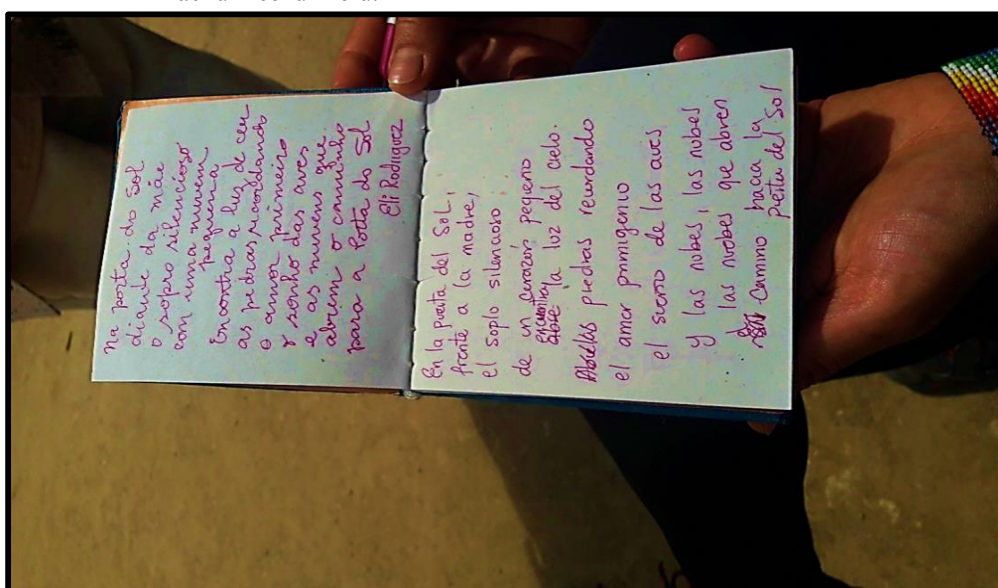 na porta do Sol
diante da mãe
o sopro silencioso
com uma nuvem
pequena
Encontra a luz de ceu
as pedras recordando
o amor primeiro
o sonho das aves
e as nuvens que
abrem o caminho
para a Porta do Sol
Eli Rodriguez
En la puerta del Sol,
frente a la madre,
el soplo silencioso
de un corazón pequeno
encuentra
abre la luz del cielo.
Abuelas piedras recordando
el amor primigenio
el sueno de las aves
y las nubes, las nubes
las nubes que abren
camino hacia la
puerta del Sol